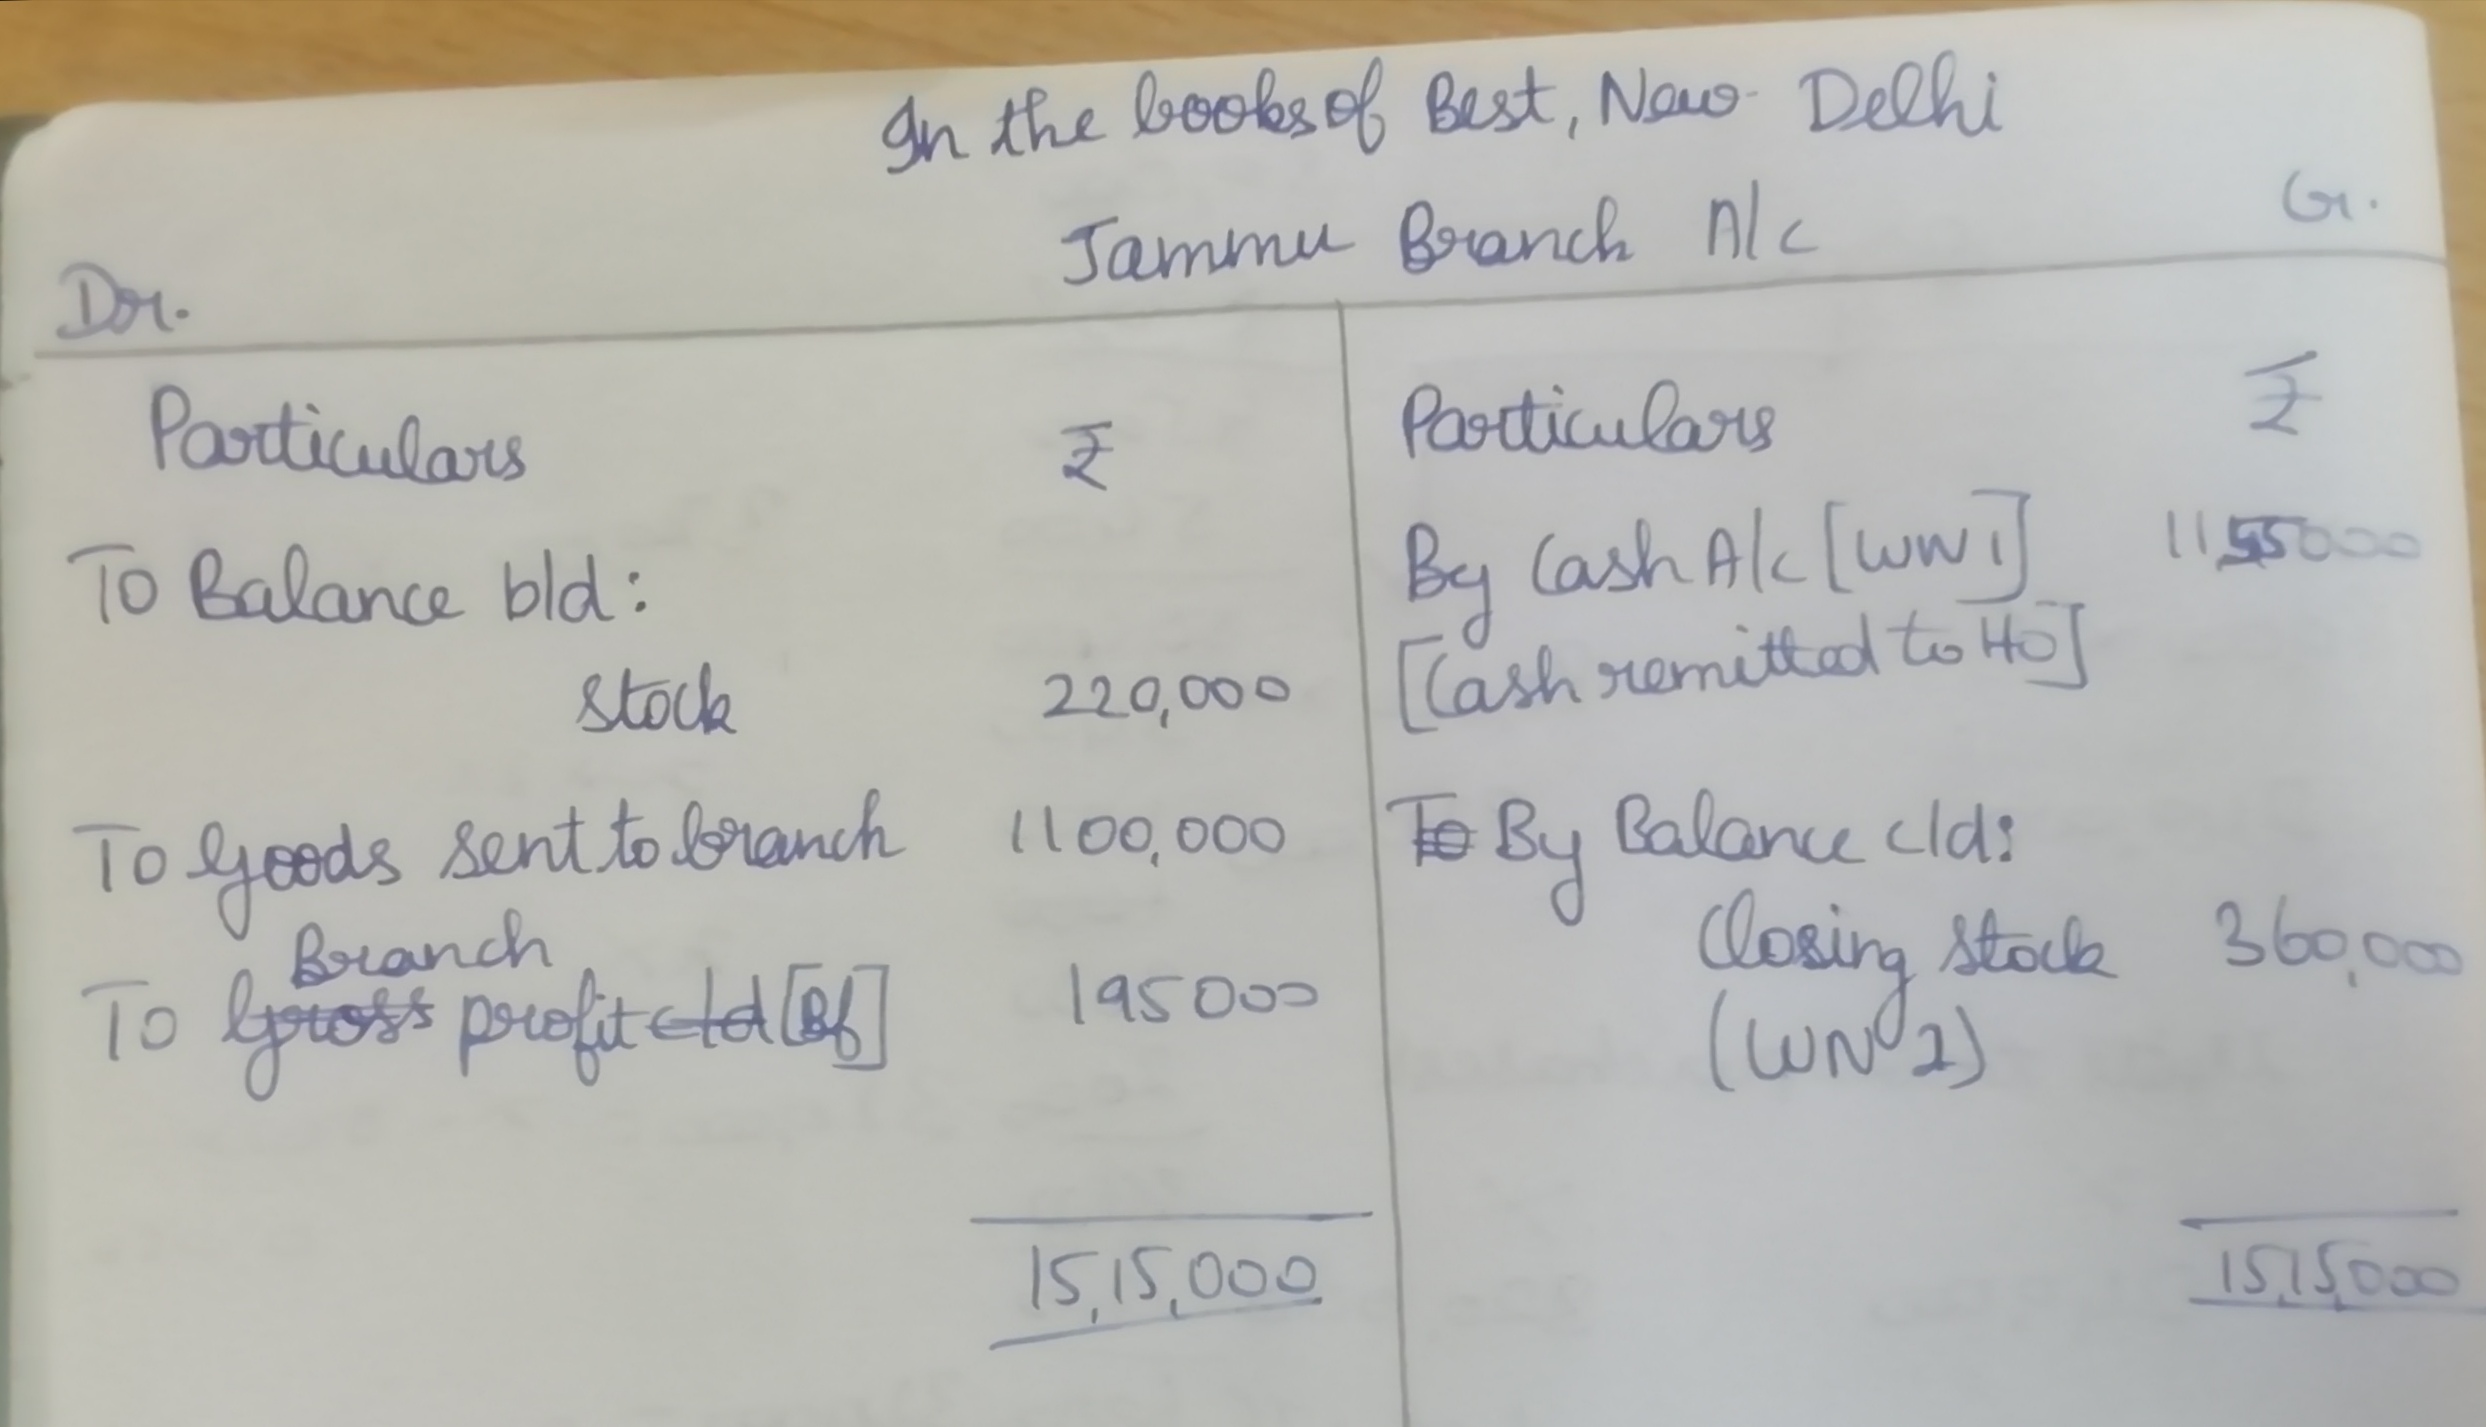 In the books of Best, New Delhi
Jammu Branch A/c
Dr. Cr.
Particulars ₹ Particulars ₹
To Balance b/d: By Cash A/c [WN 1] 1155000
[Cash remitted to HO]
Stock 220,000
To goods sent to branch 1100,000 To By Balance c/d:
Closing stock 360,000
(WN 2)
Branch
To Gross profit c/d [Bf] 195000
15,15,000 15,15,000